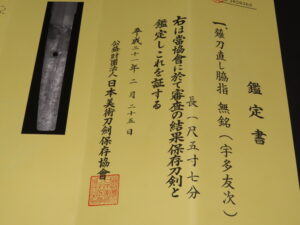 鑑定書
一、薙刀直し脇指 無銘(宇多友次)
長 一尺五寸七分
右は当協會に於て審査の結果保存刀剣と
鑑定しこれを証する
平成三十一年二月二十五日
公益財團法人日本美術刀剣保存協會